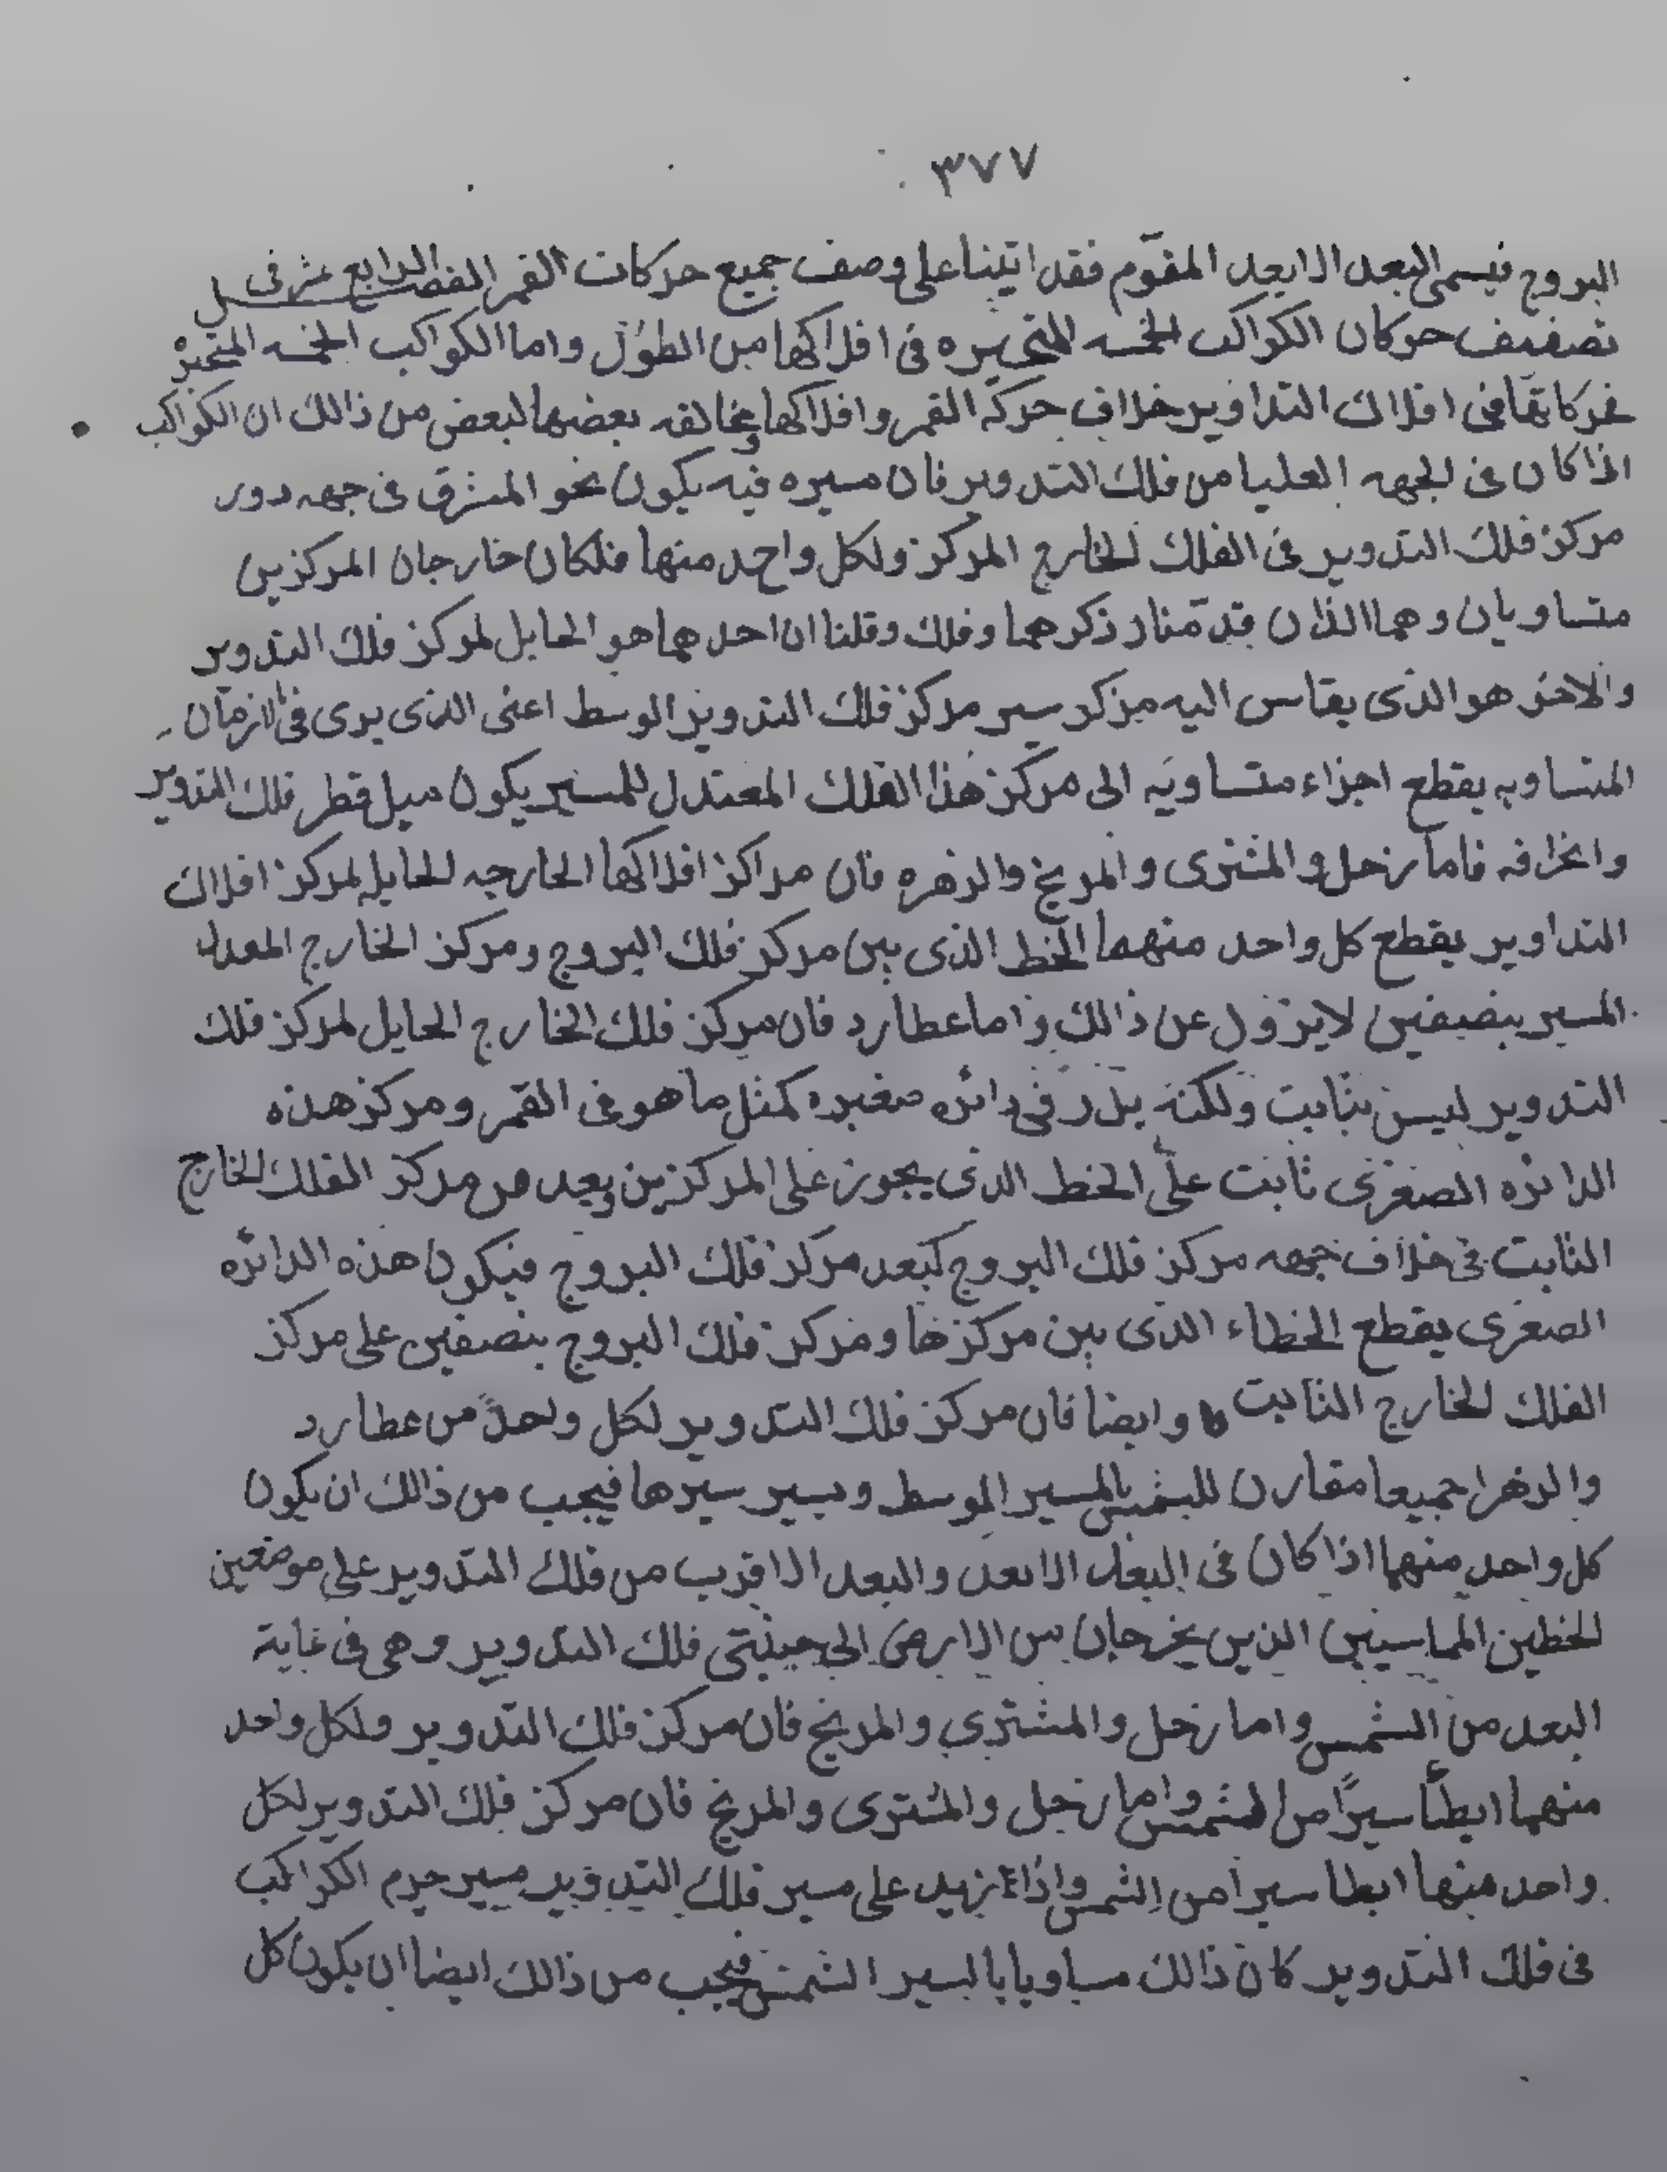 ٣٧٧
البروج فيسمى البعد الابعد المقوّم فقد اتينا على وصف جميع حركات القمر الفصل الرابع عشر فى
تصفيف حركان الكواكب الخمسه المتحيره فى افلاكها من الطول واما الكواكب الخمسه المتحيره
فحركاتها فى افلاك التداوير خلاف حركة القمر وافلاكها مخالفه بعضها لبعض من ذالك ان الكواكب
اذا كان فى الجهه العليا من فلك التدوير فان مسيره فيه يكون نحو المشرق فى جهه دور
مركز فلك التدوير فى الفلك الخارج المركز ولكل واحد منها فلكان خارجان المركزين
متساويان وهما اللذان قدّمنا ذكرهما وفلك وقلنا ان احدهما هو الحايل لمركز فلك التدوير
والاخر هو الذى يقاس اليه مركز سير مركز فلك التدوير الوسط اعنى الذى يرى فى الازمان
المتساويه يقطع اجزاء متساويَه الى مركز هذا الفلك المعتدل للمسير يكون ميل قطر فلك التدوير
وانحرافه فاما زحل والمشترى والمريخ والزهره فان مراكز افلاكها الخارجه الحايله لمركز افلاك
التداوير يقطع كل واحد منهما الخط الذى بين مركز فلك البروج ومركز الخارج المعدل
المسير بنصفين لا يزول عن ذالك واما عطارد فان مركز فلك الخارج الحايل لمركز فلك
التدوير ليس بثابت ولكنه يدر فى دائره صغيره كمثل ما هو فى القمر ومركز هذه
الدائره الصغرى ثابت على الخط الذى يجوز على المركزين وبعد من مركز الفلك الخارج
الثابت فى خلاف جهه مركز فلك البروج كبعد مركز فلك البروج فيكون هذه الدائره
الصغرى يقطع الخطاء الذى بين مركزها ومركز فلك البروج بنصفين على مركز
الفلك الخارج الثابت ه وايضا فان مركز فلك التدوير لكل واحدً من عطارد
والزهرا جميعا مقارن للشمس بالمسير الموسط ويسير سيرها فيجب من ذالك ان يكون
كل واحد منهما اذا كان فى البعد الابعد والبعد الاقرب من فلك التدوير على موضعين
الخطين المماسيين الذين يخرجان من الارض الى جنبتى فلك التدوير وهى فى غاية
البعد من الشمس واما زحل والمشتري والمريخ فان مركز فلك التدوير ولكل واحد
منهما ابطأ سيرًا من الشمس واما زحل والمشترى والمريخ فان مركز فلك التدوير لكل
واحد منها ابطا سيرا من الشمس واذا نزيد على مسير فلك التدوير مسير جرم الكواكب
فى فلك التدوير كان ذالك مساويا بالسير الشمس فيجب من ذالك ايضا ان يكون كل